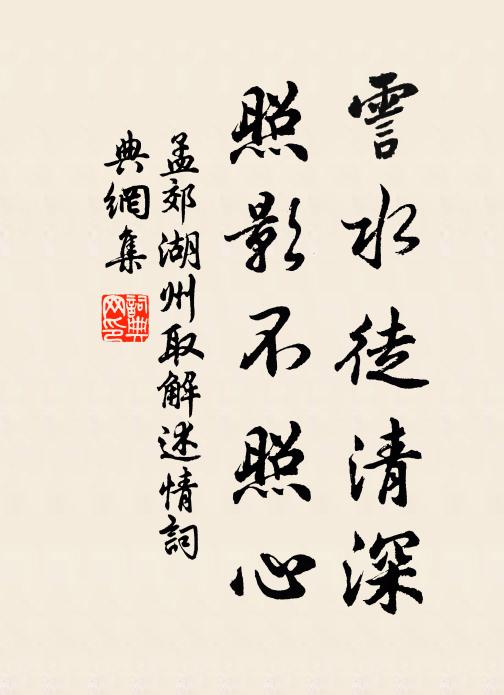 霅水徒清深
照影不照心
孟郊湖州取解述情詞
典網集
詞典網印